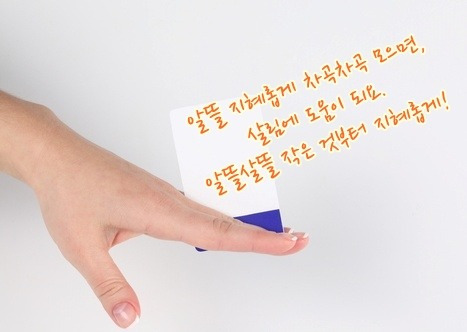 알뜰 지혜롭게 차곡차곡 모으면,
살림에 도움이 되요.
알뜰살뜰 작은 것부터 지혜롭게!